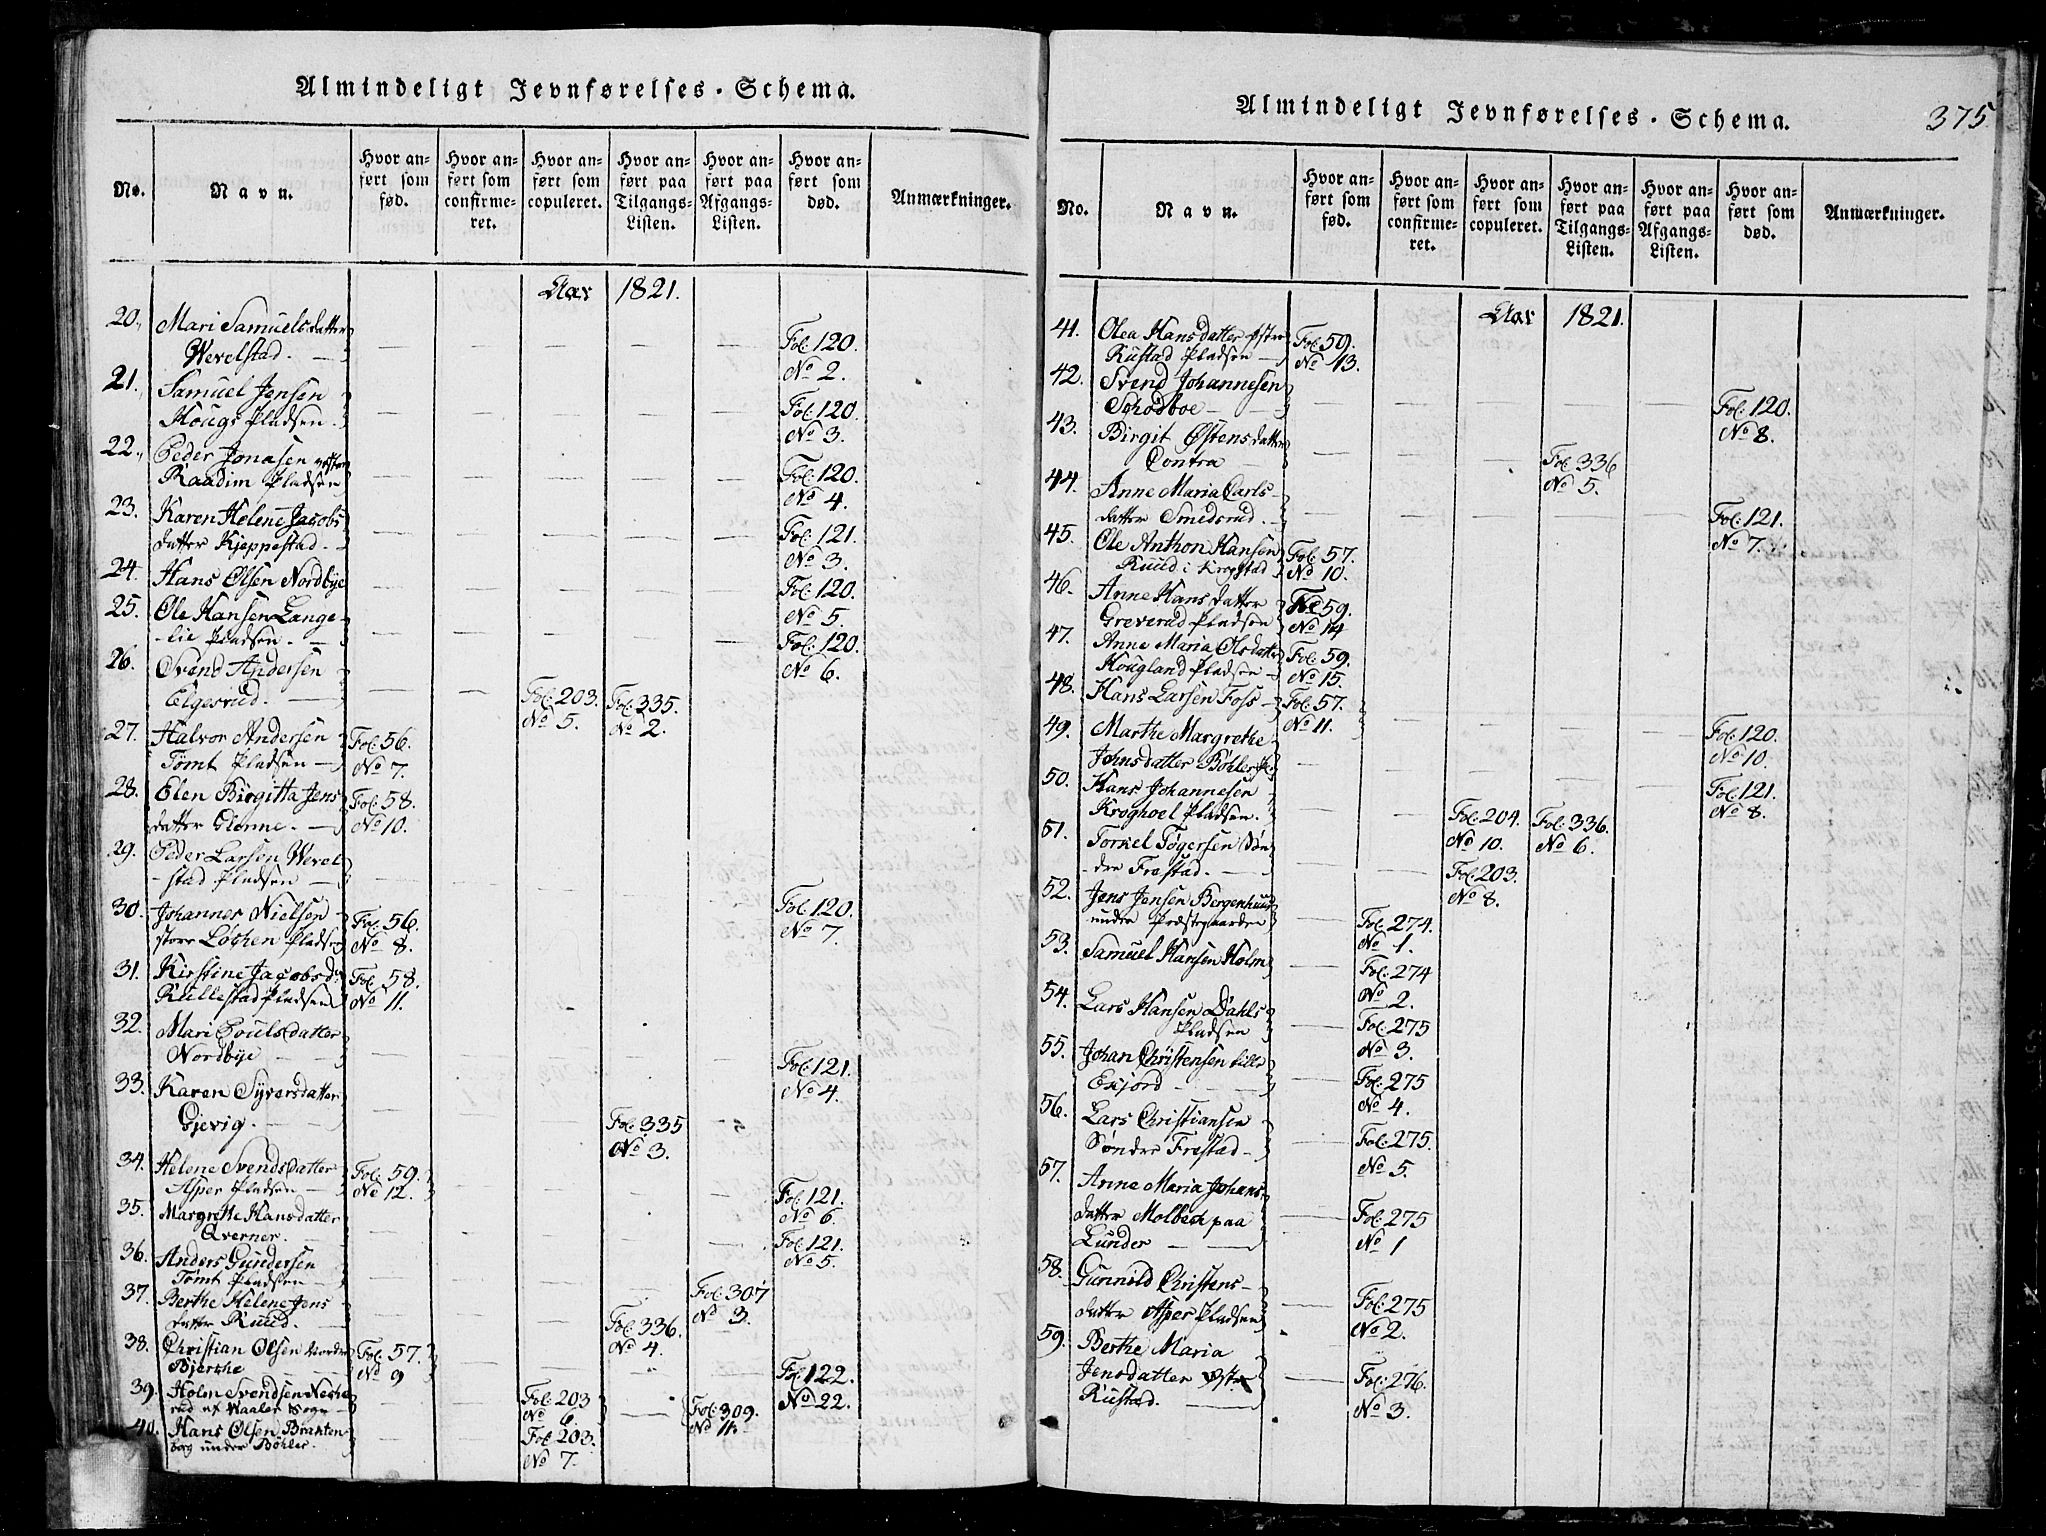 Almindeligt Jevnførelses-Schema.
No.
Navn.
Hvor an-
ført som
fød.
Hvor an-
ført som
confirme-
ret.
Hvor an-
ført som
copuleret.
Hvor an-
ført paa
Tilgangs-
Listen.
Hvor an-
ført paa
Afgangs-
Listen.
Hvor an-
ført som
død.
Anmærkninger.
Aar 1821.
20. Mari Samuelsdatter
Wevelstad. Fol. 120.
No 2.
21. Samuel Jensen
Hougs Pladsen. Fol. 120.
No 3.
22. Peder Jonasen
Raadim Pladsen Fol. 120.
No 4.
23. Karen Helene Jacobs
datter Kjeppestad. Fol. 121.
No 3.
24. Hans Olsen Nordbye Fol. 120.
No 5.
25. Ole Hansen Lange-
lie Pladsen. Fol. 120.
No 6.
26. Svend Andersen
Elgesrud. Fol. 203. Fol. 335.
No 5. No 2.
27. Halvor Andersen Fol. 56.
Tomt Pladsen No 7.
28. Elen Birgitta Jens Fol. 58.
datter Glenne. No 10.
29. Peder Larsen Wevel
-stad Pladsen Fol. 120.
No 7.
30. Johannes Nielsen Fol. 56.
store Løchen Pladsen No 8.
31. Kirstine Jacobsd: Fol. 58.
Kullestad Pladsen No 11.
32. Mari Poulsdatter
Nordbye Fol. 121.
No 4.
33. Karen Syversdatter
Gjevig. Fol. 335
No 3.
34. Helene Svendsdatter Fol. 59.
Asper Pladsen No 12.
35. Margrethe Hansdatter Fol. 121.
Qverner. No 6.
36. Anders Gundersen Fol. 121.
Tomt Pladsen No 5.
37. Berthe Helene Jens Fol. 307
datter Ruud. Fol. 336. No 3.
No 4.
38. Christian Olsen Nordre Fol. 57.
Bjerche No 9 Fol. 122.
39. Holm Svendsen Fol. 203 Fol. 309. No 22.
rud af Waaler Sogn No 6. No 11.
40. Hans Olsen Brakten Fol. 203.
berg under Bøhler. No 7.
Almindeligt Jevnførelses-Schema.
375
No.
Navn.
Hvor an-
ført som
fød.
Hvor an-
ført som
confirme-
ret.
Hvor an-
ført som
copuleret.
Hvor an-
ført paa
Tilgangs-
Listen.
Hvor an-
ført paa
Afgangs-
Listen.
Hvor an-
ført som
død.
Anmærkninger.
Aar 1821.
41. Olea Hansdatter Østre Fol. 59.
Rustad Pladsen No 13.
42. Svend Johannesen
Schodboe Fol. 120.
No 8.
43. Birgit Østensdatter
Contra Fol. 336
No 5.
44. Anne Maria Carls-
datter Smedsrud. Fol. 121.
No 7.
45. Ole Anthon Hansen Fol. 57.
Ruud i Krogstad No 10.
46. Anne Hansdatter Fol 59.
Greverud Pladsen No 14
47. Anne Maria Olsdatter Fol. 59.
Hougland Pladsen No 15.
48. Hans Larsen Foss Fol. 57.
No 11.
49. Marthe Margrethe Fol. 120.
Johnsdatter Bøhler No 10.
50. Hans Johannesen Fol. 121.
Kroghoel Pladsen. No 8.
51. Torkel Tøgersen Søn Fol. 204. Fol. 336.
dre Frestad. No 10. No 6.
52. Jens Jensen Bergenhuus Fol. 203.
under Præstegaarden No 8.
Fol. 274.
No 1.
53. Samuel Hansen Holm Fol. 274
No 2.
54. Lars Hansen Dahls
Pladsen Fol. 275
No 3.
55. Johan Christensen lille
Exjord Fol. 275
No 4.
56. Lars Christiansen
Søndre Frestad Fol. 275.
No 5.
57. Anne Maria Johans
datter Molbech paa Fol. 275
Lunder No 1
58. Gunnild Christens-
datter Asper Pladsen Fol. 275
No 2.
59. Berthe Maria
Jensdatter Østre Fol. 276.
Rustad. No 3.